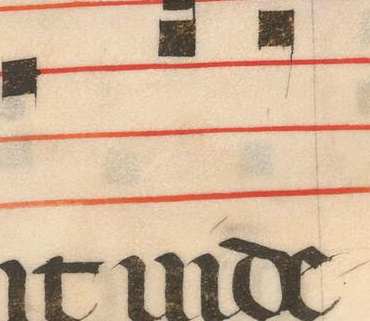 nt unde